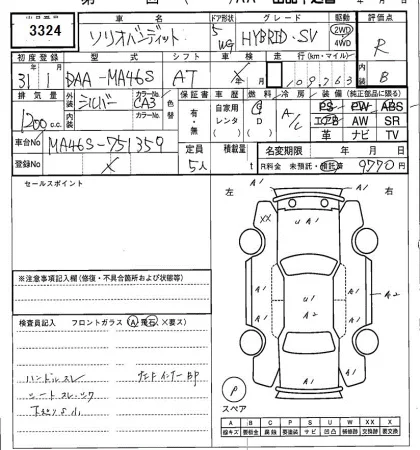 3324
車名
ソリオバンディット
ドア形状
5
WG
グレード
HYBRID・SV
駆動
2WD
4WD
評価点
R
B
初度登録
31年1月
型式
DAA-MA46S
シフト
AT
車検
年 月
走行(km・マイル)
109,763
排気量
1200 c.c.
外装
シルバー
カラーNo.
CA3
内装
カラーNo.
色替
保証書
有・無
車歴
自家用
レンタ
燃料
G
D
冷房
A/C
装備(純正部品に限る)
PS PW ABS
エアB AW SR
革 ナビ TV
車台No.
MA46S-751359
定員
5人
積載量
t
名変期限 年 月 日
R料金 未預託・預託済 9770円
登録No.
×
セールスポイント
※注意事項記入欄(修復・不具合箇所および状態等)
検査員記入 フロントガラス(A 飛石 ×要ス)
ハンドルスレ
シートスレ
左 右
XX
A1
A1
A1
U1
A2
A1
U1
A1
A1
P
スペア
A B C P S U W X XX